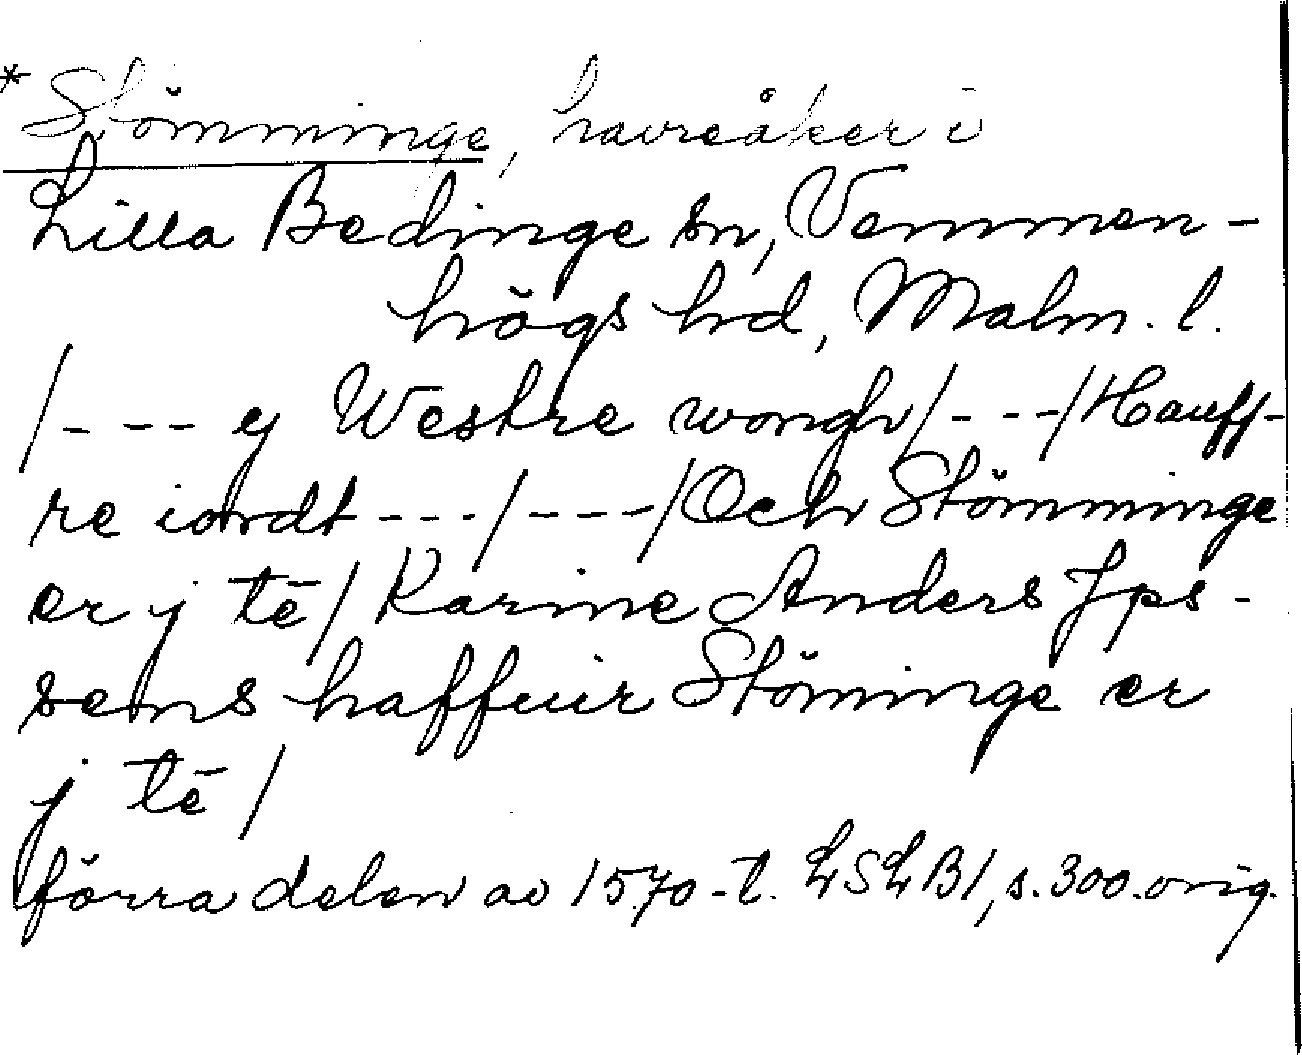 *Stömminge, havreåker i
Lilla Bedinge sn, Vemmen-
högs hd, Malm. l.
/--- ej Westre wongh/---/Hauff-
re iordt---/---/Och Stömminge
er j tē/ Karine Anders Jps-
sens haffuir Stöminge er
j tē/
förra delen av 1570-t. LSLB1, s. 300. orig.